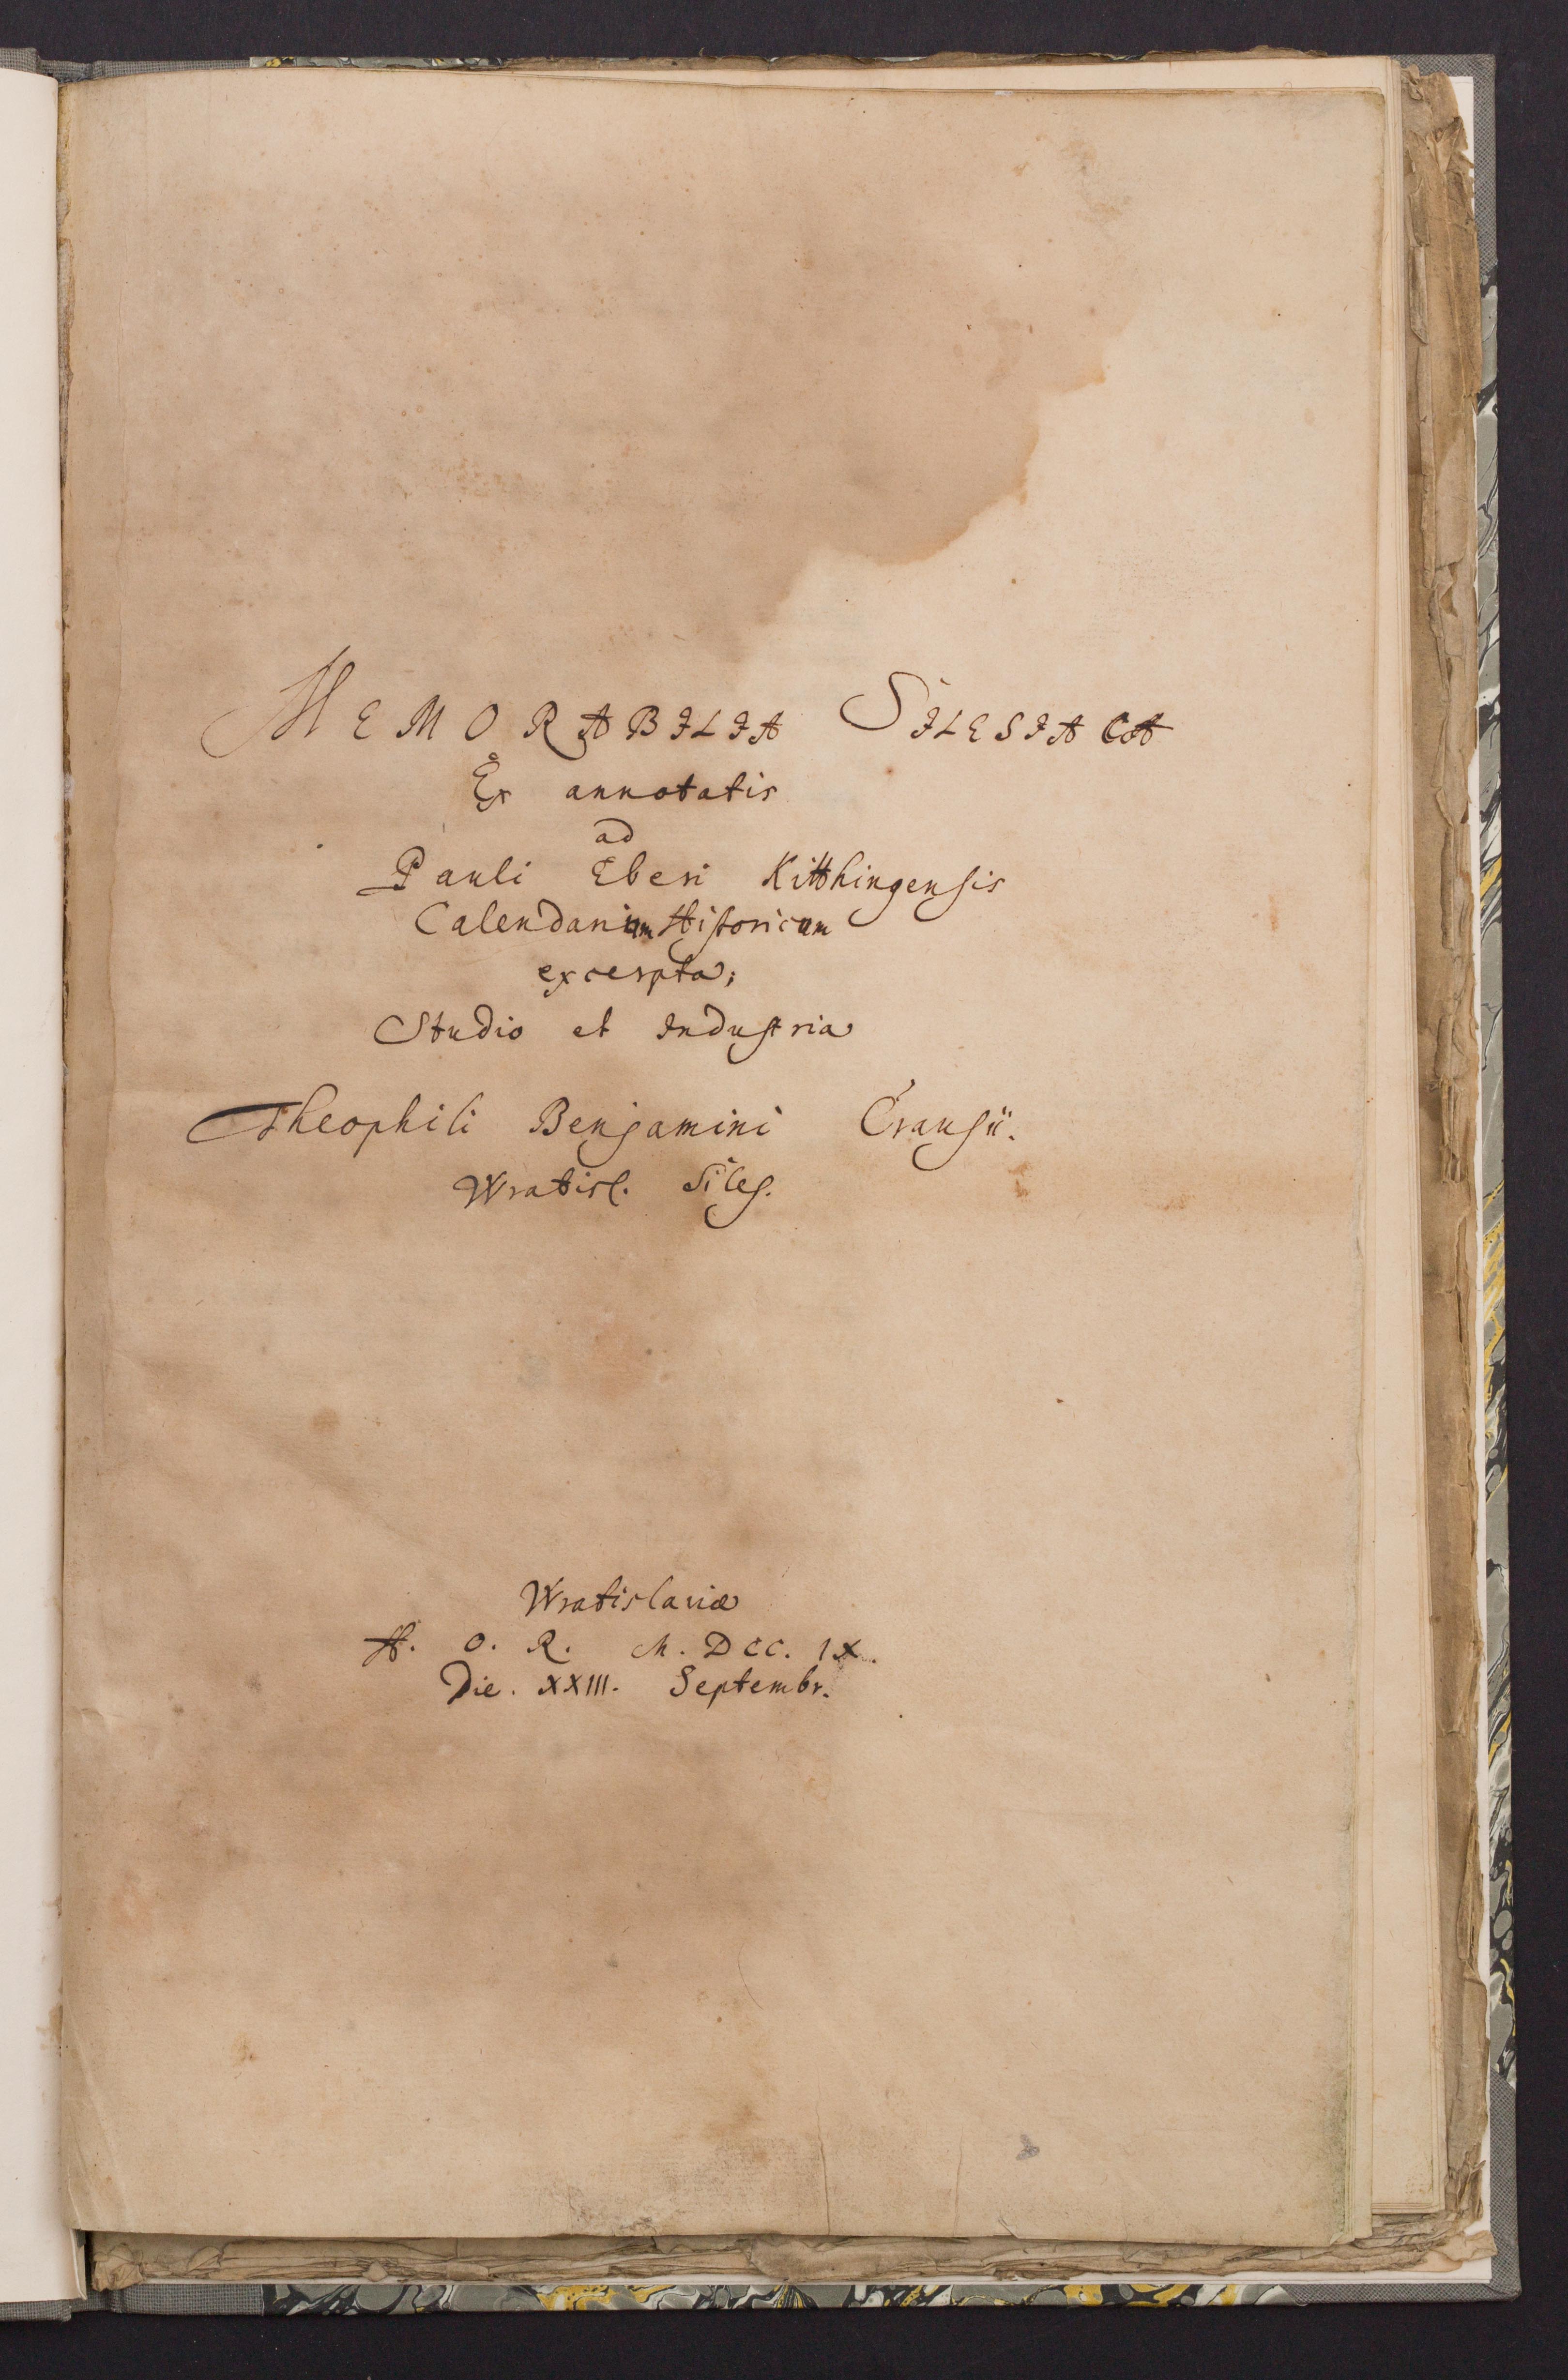 MEMORABILIA SILESIACA
Ex annotatis
ad
Pauli Eberi Kitthingensis
Calendarium Historicum
excerpta;
Studio et Industria
Theophili Benjamini Crausii.
Wratisl. Siles.
Wratislaviæ
A. O. R. M. DCC. IX.
Die. XXIII. Septembr.